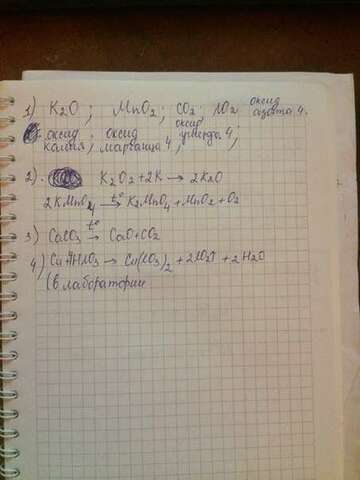 1) K2O ; MnO2 ; CO2 ; NO2 оксид азота 4.
оксид калия, оксид марганца 4, оксид углерода 4;
2). K2O2 + 2K → 2K2O
2KMnO4 t° → K2MnO4 + MnO2 + O2
3) CaCO3 t° → CaO + CO2
4) Cu 4HNO3 → Cu(NO3)2 + 2NO2↑ + 2H2O
(в лаборатории